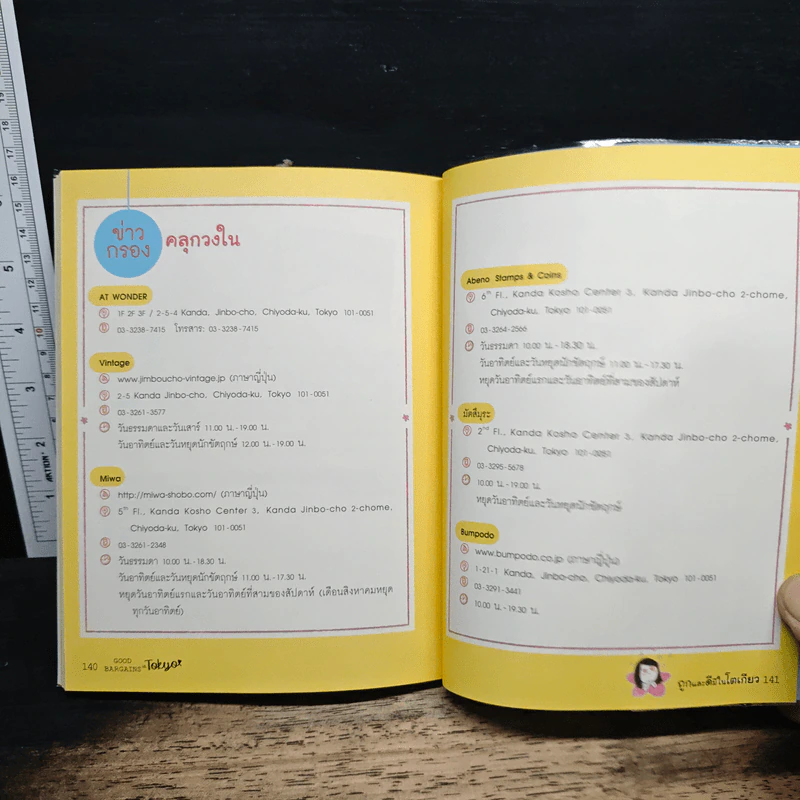 ข่าว
กรอง
คลุกวงใน
AT WONDER
1F 2F 3F / 2-5-4 Kanda, Jinbo-cho, Chiyoda-ku, Tokyo 101-0051
03-3238-7415 โทรสาร: 03-3238-7415
Vintage
www.jimboucho-vintage.jp (ภาษาญี่ปุ่น)
2-5 Kanda Jinbo-cho, Chiyoda-ku, Tokyo 101-0051
03-3261-3577
วันธรรมดาและวันเสาร์ 11.00 น.-19.00 น.
วันอาทิตย์และวันหยุดนักขัตฤกษ์ 12.00 น.-19.00 น.
Miwa
http://miwa-shobo.com/ (ภาษาญี่ปุ่น)
5th Fl., Kanda Kosho Center 3, Kanda Jinbo-cho 2-chome,
Chiyoda-ku, Tokyo 101-0051
03-3261-2348
วันธรรมดา 10.00 น.-18.30 น.
วันอาทิตย์และวันหยุดนักขัตฤกษ์ 11.00 น.-17.30 น.
หยุดวันอาทิตย์แรกและวันอาทิตย์ที่สามของสัปดาห์ (เดือนสิงหาคมหยุด
ทุกวันอาทิตย์)
140 GOOD BARGAINS in Tokyo
Abeno Stamps & Coins
6th Fl., Kanda Kosho Center 3, Kanda Jinbo-cho 2-chome,
Chiyoda-ku, Tokyo 101-0051
03-3264-2566
วันธรรมดา 10.00 น.-18.30 น.
วันอาทิตย์และวันหยุดนักขัตฤกษ์ 11.00 น.-17.30 น.
หยุดวันอาทิตย์แรกและวันอาทิตย์ที่สามของสัปดาห์
มัตสึมุระ
2nd Fl., Kanda Kosho Center 3, Kanda Jinbo-cho 2-chome,
Chiyoda-ku, Tokyo 101-0051
03-3295-5678
10.00 น.-19.00 น.
หยุดวันอาทิตย์และวันหยุดนักขัตฤกษ์
Bumpodo
www.bumpodo.co.jp (ภาษาญี่ปุ่น)
1-21-1 Kanda, Jinbo-cho, Chiyoda-ku, Tokyo 101-0051
03-3291-3441
10.00 น.-19.30 น.
ถูกและดีมีในโตเกียว 141